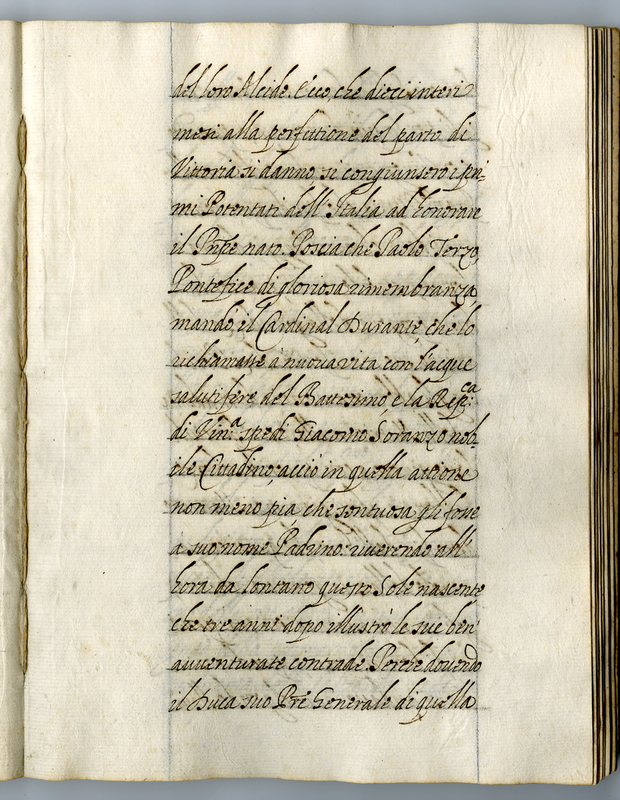 del loro Alcide. Ecco, che dieci interi
mesi alla perfettione del parto di
Vittoria si danno, si congiunsero i pri-
mi Potentati dell'Italia ad honorare
il Pn̄pe nato. Poscia che Paolo Terzo
Pontefice di gloriosa rimembranza
mandò il Cardinal Durante, che lo
richiamasse à nuova vita con l'acque
salutifere del Battesimo, e la Rep:ca
di Vin:a spedì Giacomo Soranzo nob-
ile Cittadino, acciò in quella attione
non meno pia, che sontuosa gli fosse
a suo nome Padrino: riverendo all'
hora da lontano questo Sole nascente
che tre anni dopo illustrò le sue ben'
avventurate contrade. Perche dovendo
il Duca suo Pr̄e Generale di quella